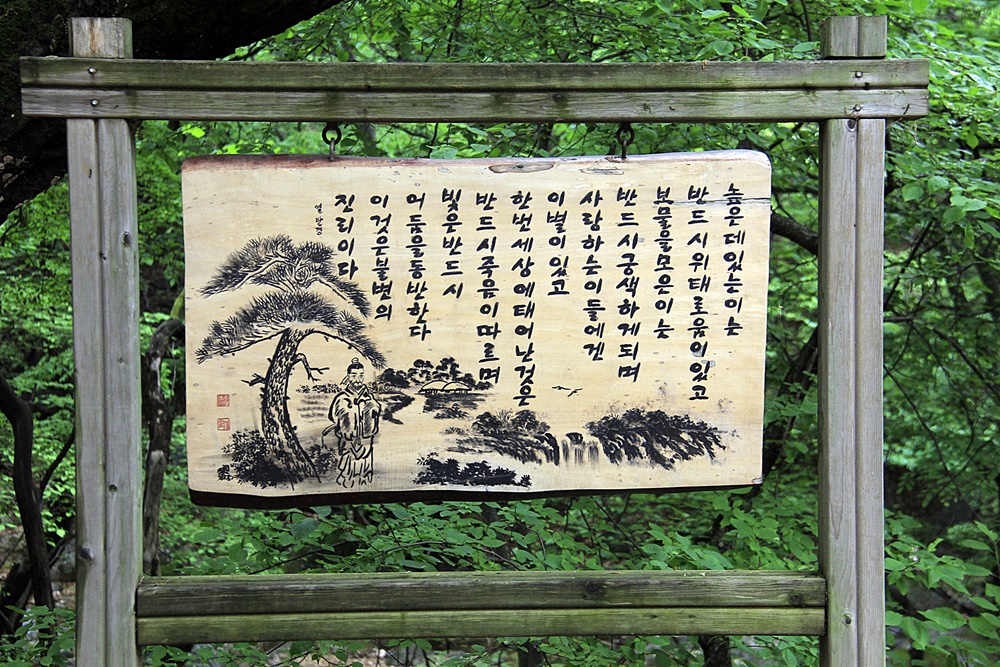 높은데있는이는
반드시위태로움이있고
보물을모은이는
반드시궁색하게되며
사랑하는이들에겐
이별이있고
한번세상에태어난것은
반드시죽음이따르며
빛은반드시
어둠을동반한다
이것은불변의
진리이다
열반경